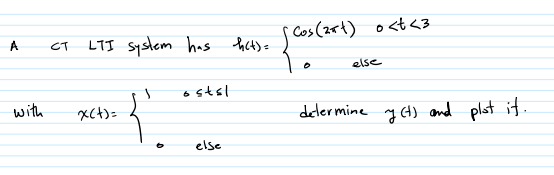 A CT LTI system has h(t)= { cos(2πt) 0<t<3
0 else
with x(t)= { 1 0≤t≤1 determine y(t) and plot it.
0 else